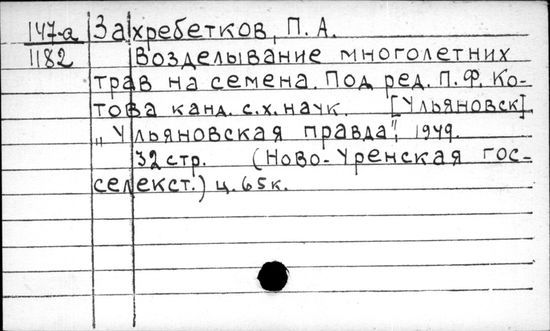 147-а Захребетков, П. А.
1182 Возделывание многолетних
трав на семена. Под ред. П. Ф. Ко-
това канд. с.х. наук. [Ульяновск]
„Ульяновская правда", 1949.
32 стр. (Ново-Уренская гос-
селекст.) ц. 65 к.